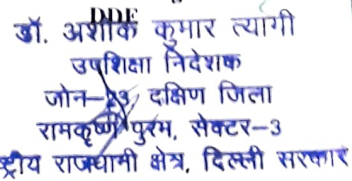 DDE
डॉ. अशोक कुमार त्यागी
उपशिक्षा निदेशक
जोन-23, दक्षिण जिला
रामकृष्ण पुरम, सेक्टर-3
ट्रीय राजधानी क्षेत्र, दिल्ली सरकार